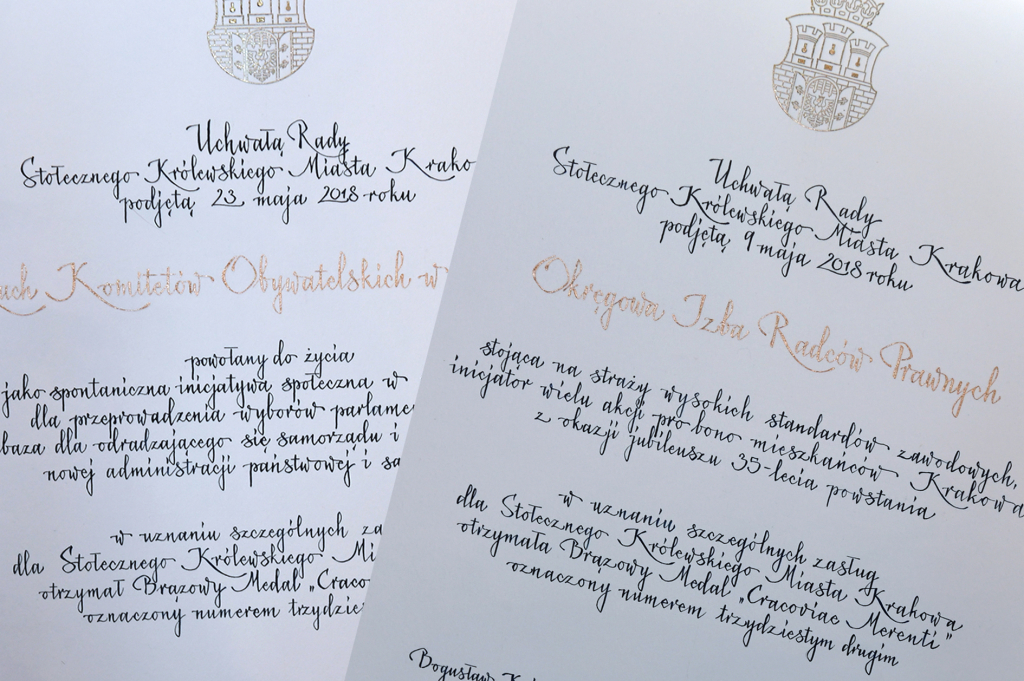 Uchwałą Rady
Stołecznego Królewskiego Miasta Krako
podjętą 23 maja 2018 roku
ach Komitetów Obywatelskich w
powołany do życia
jako spontaniczna inicjatywa społeczna w
dla przeprowadzenia wyborów parlame
baza dla odradzającego się samorządu i
nowej administracji państwowej i sa
w uznaniu szczególnych za
dla Stołecznego Królewskiego Mi
otrzymał Brązowy Medal „Craco
oznaczony numerem trzydzie
Uchwałą Rady
Stołecznego Królewskiego Miasta Krakowa
podjętą 9 maja 2018 roku
Okręgowa Izba Radców Prawnych
stojąca na straży wysokich standardów zawodowych,
inicjator wielu akcji pro bono mieszkańców Krakowa
z okazji jubileuszu 35-lecia powstania
w uznaniu szczególnych zasług
dla Stołecznego Królewskiego Miasta Krakowa
otrzymała Brązowy Medal „Cracoviae Merenti”
oznaczony numerem trzydziestym drugim
Bogusław